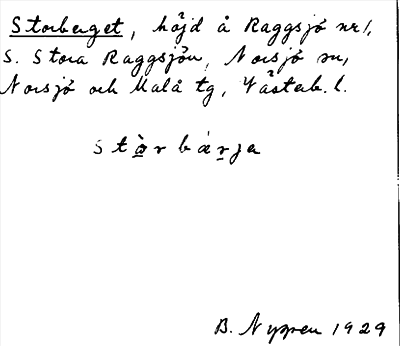 Storberget, höjd å Raggsjö nr 1,
S. Stora Raggsjön, Norsjö sn,
Norsjö och Malå tg, Västerb. l.
stò̱rbár̠ja
B. Nygren 1929